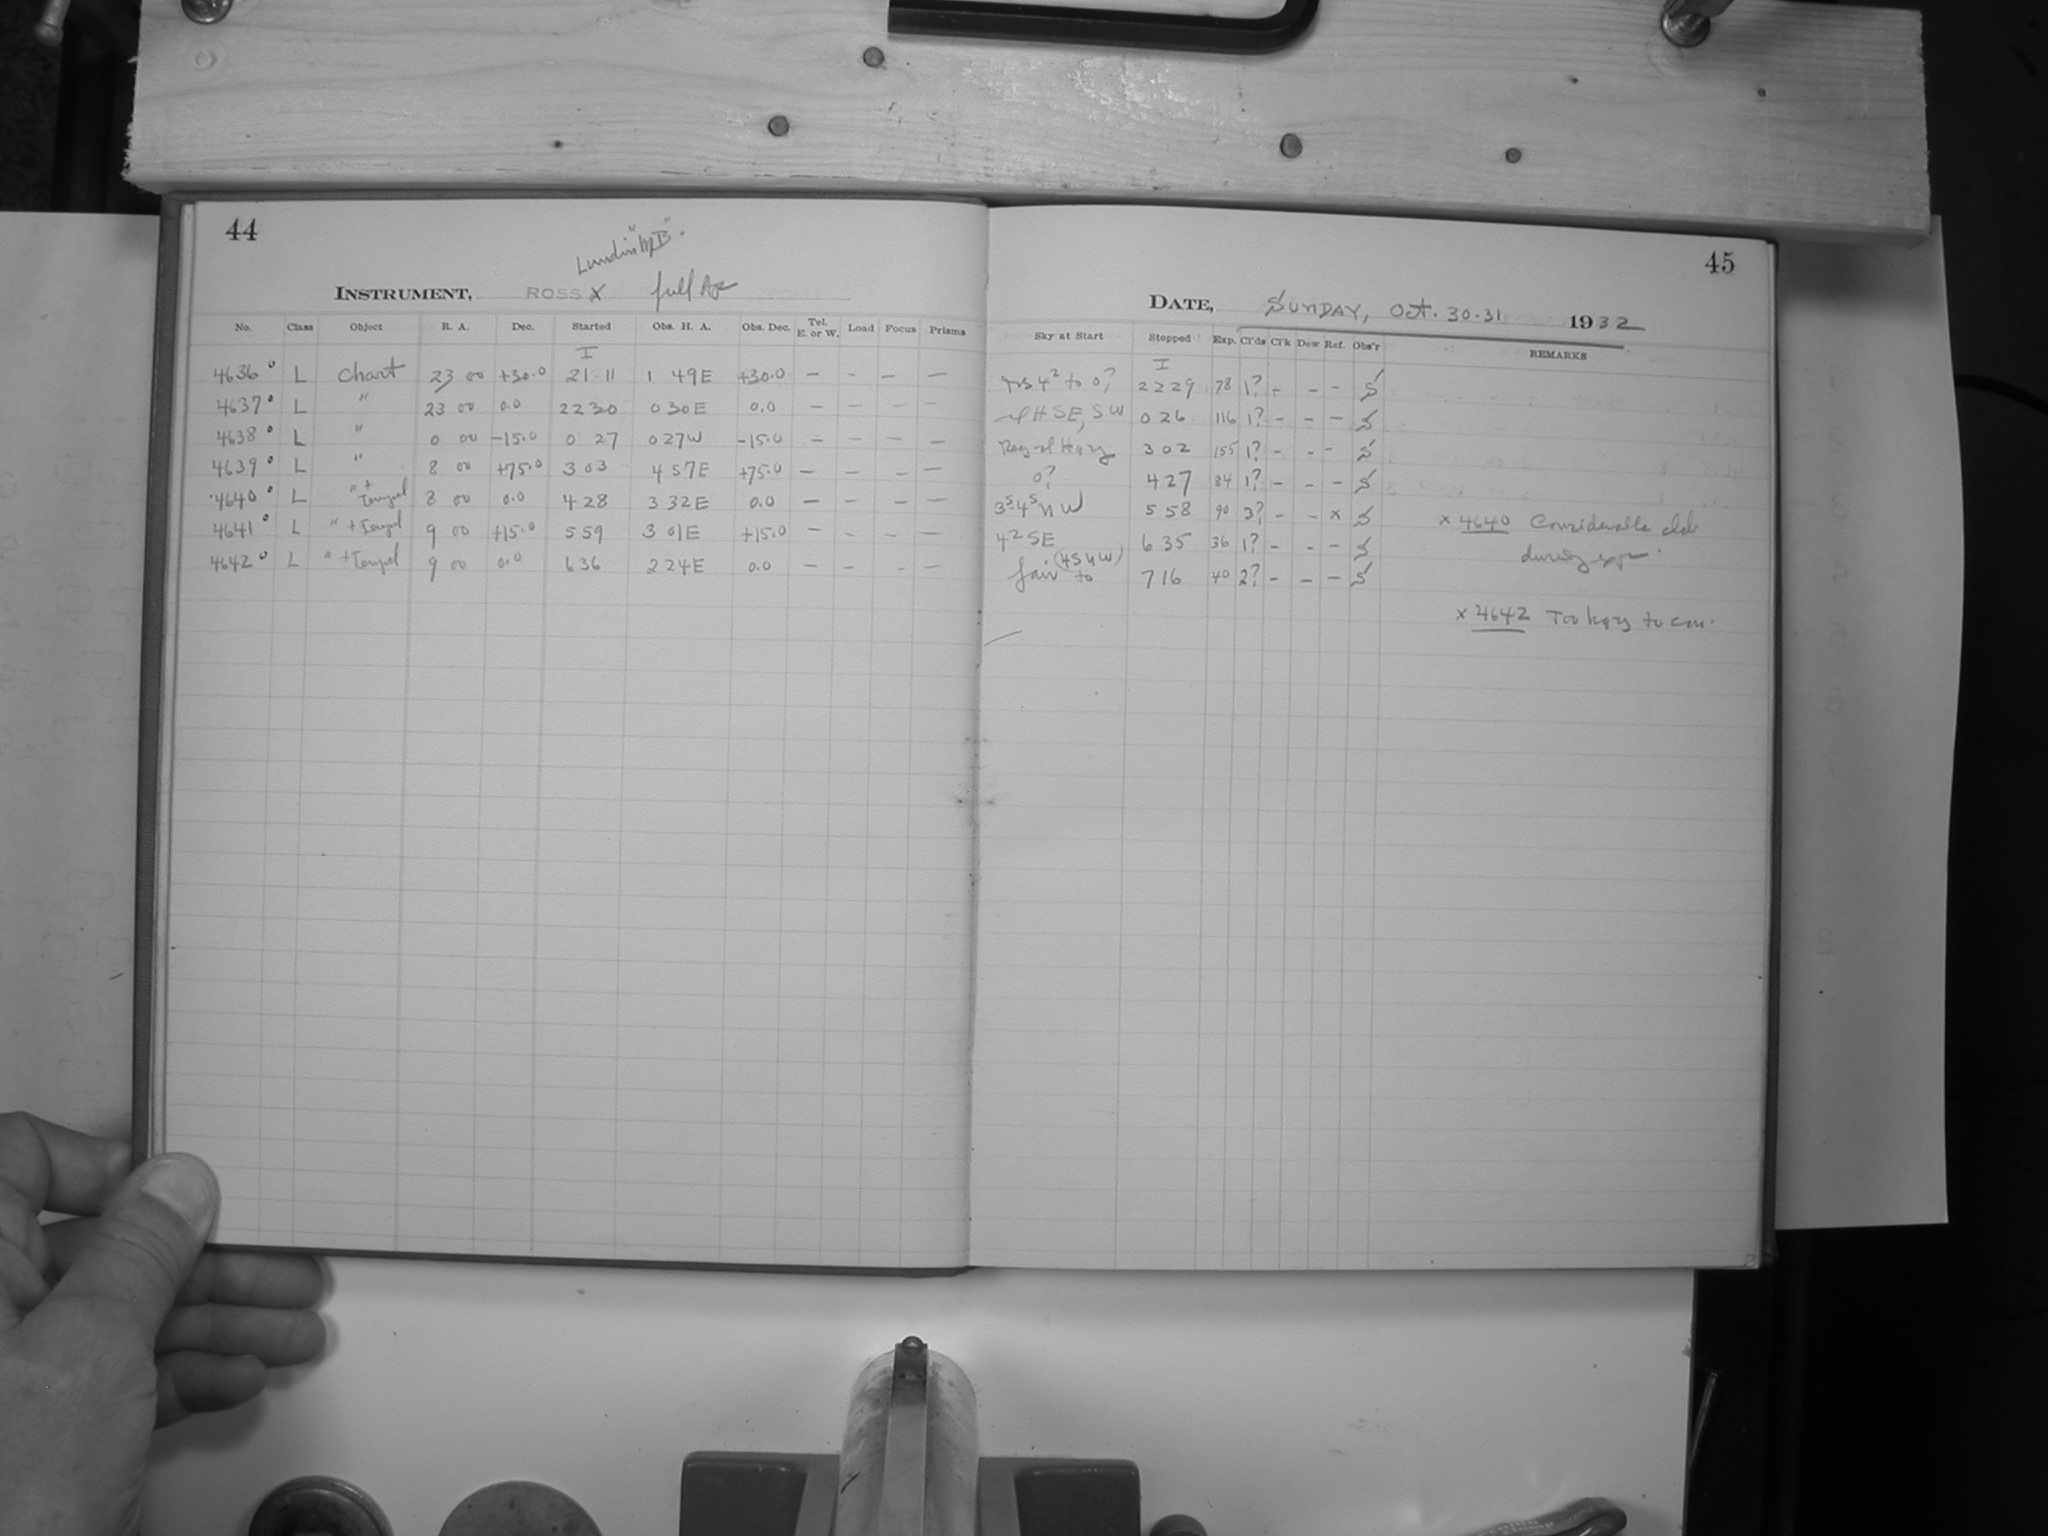 44
Lundin "MB".
INSTRUMENT, ROSS X full Ap
No. Class Object R. A. Dec. Started Obs. H. A. Obs. Dec. Tel. E. or W. Load Focus Prisms
I
4636° L Chart 23 00 +30.0 21 11 1 49E +30.0 — - — —
4637° L " 23 00 0.0 22 30 0 30E 0.0 — — — —
4638° L " 0 00 -15.0 0 27 0 27W -15.0 — - — —
4639° L " 8 00 +75.0 3 03 4 57E +75.0 — — — —
4640° L " + Tempel 8 00 0.0 4 28 3 32E 0.0 — — — —
4641° L " + Tempel 9 00 +15.0 5 59 3 01E +15.0 — - - —
4642° L " + Tempel 9 00 0.0 6 36 2 24E 0.0 — — - —
45
DATE, SUNDAY, Oct. 30-31 1932
Sky at Start Stopped Exp. Cl'ds Cl'k Dew Ref. Obs'r REMARKS
I
4² to 0? 22 29 78 1? - - - S
H SE, SW 0 26 116 1? - - — S
Hazy 3 02 155 1? - - - S
0? 4 27 84 1? - - - S
3⁵4⁵ NW 5 58 90 3? - - x S x 4640 Considerable cld
during exp.
4² SE 6 35 36 1? - - - S
fair (45 NW) to 7 16 40 2? - — — S
x 4642 Too hazy to